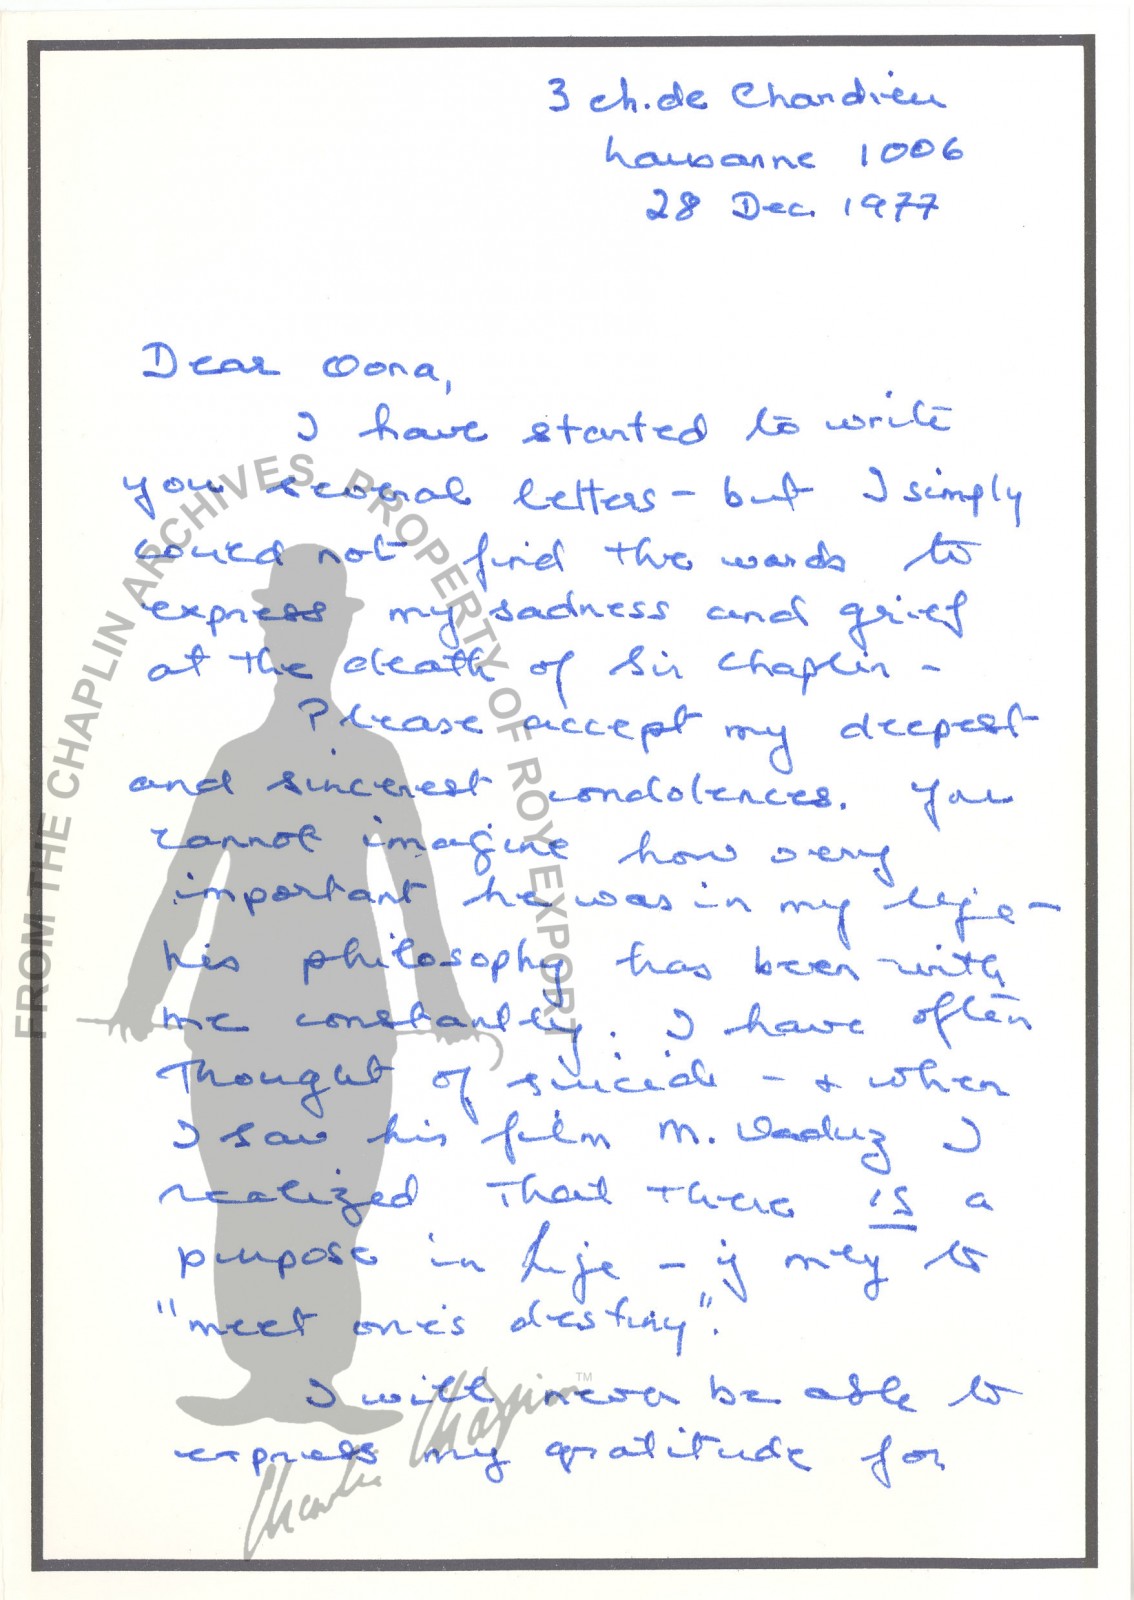 3 ch. de Chandieu
Lausanne 1006
28 Dec. 1977
Dear Oona,
I have started to write
you several letters - but I simply
could not find the words to
express my sadness and grief
at the death of Sir Chaplin -
Please accept my deepest
and sincerest condolences. You
cannot imagine how very
important he was in my life -
his philosophy has been with
me constantly. I have often
thought of suicide - + when
I saw his film M. Verdux I
realized that there is a
purpose in life - if only to
"meet one's destiny".
I will never be able to
express my gratitude for
FROM THE CHAPLIN ARCHIVES. PROPERTY OF ROY EXPORT
Charlie Chaplin TM